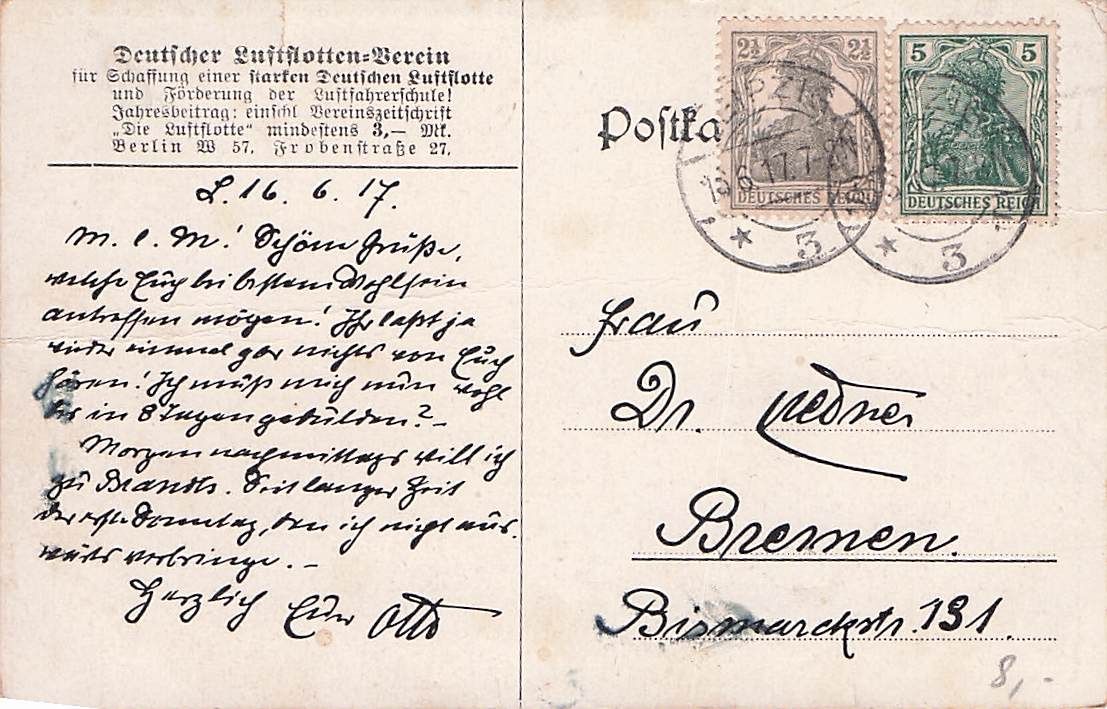 Deutscher Luftflotten-Verein
für Schaffung einer starken Deutschen Luftflotte
und Förderung der Luftfahrerschule!
Jahresbeitrag: einschl Vereinszeitschrift
„Die Luftflotte“ mindestens 3,— Mk.
Berlin W 57, Frobenstraße 27.
L. 16. 6. 17.
M. l. M.! Schöne Grüße,
welche Euch bei bestem Wohlsein
antreffen mögen! Ihr laßt ja
wieder einmal gar nichts von Euch
hören! Ich muß mich nun wohl
bis in 8 Tagen gedulden? –
Morgen nachmittags will ich
zu Brandts. Seit langer Zeit
der erste Sonntag, den ich nicht aus-
wärts verbringe. –
Herzlich Euer Otto
Postka
2½ 2½
DEUTSCHES REICH
5 5
DEUTSCHES REICH
17.7-8N
* 3
* 3
Frau
Dr.
Bremen.
Bismarckstr. 131.
8,-